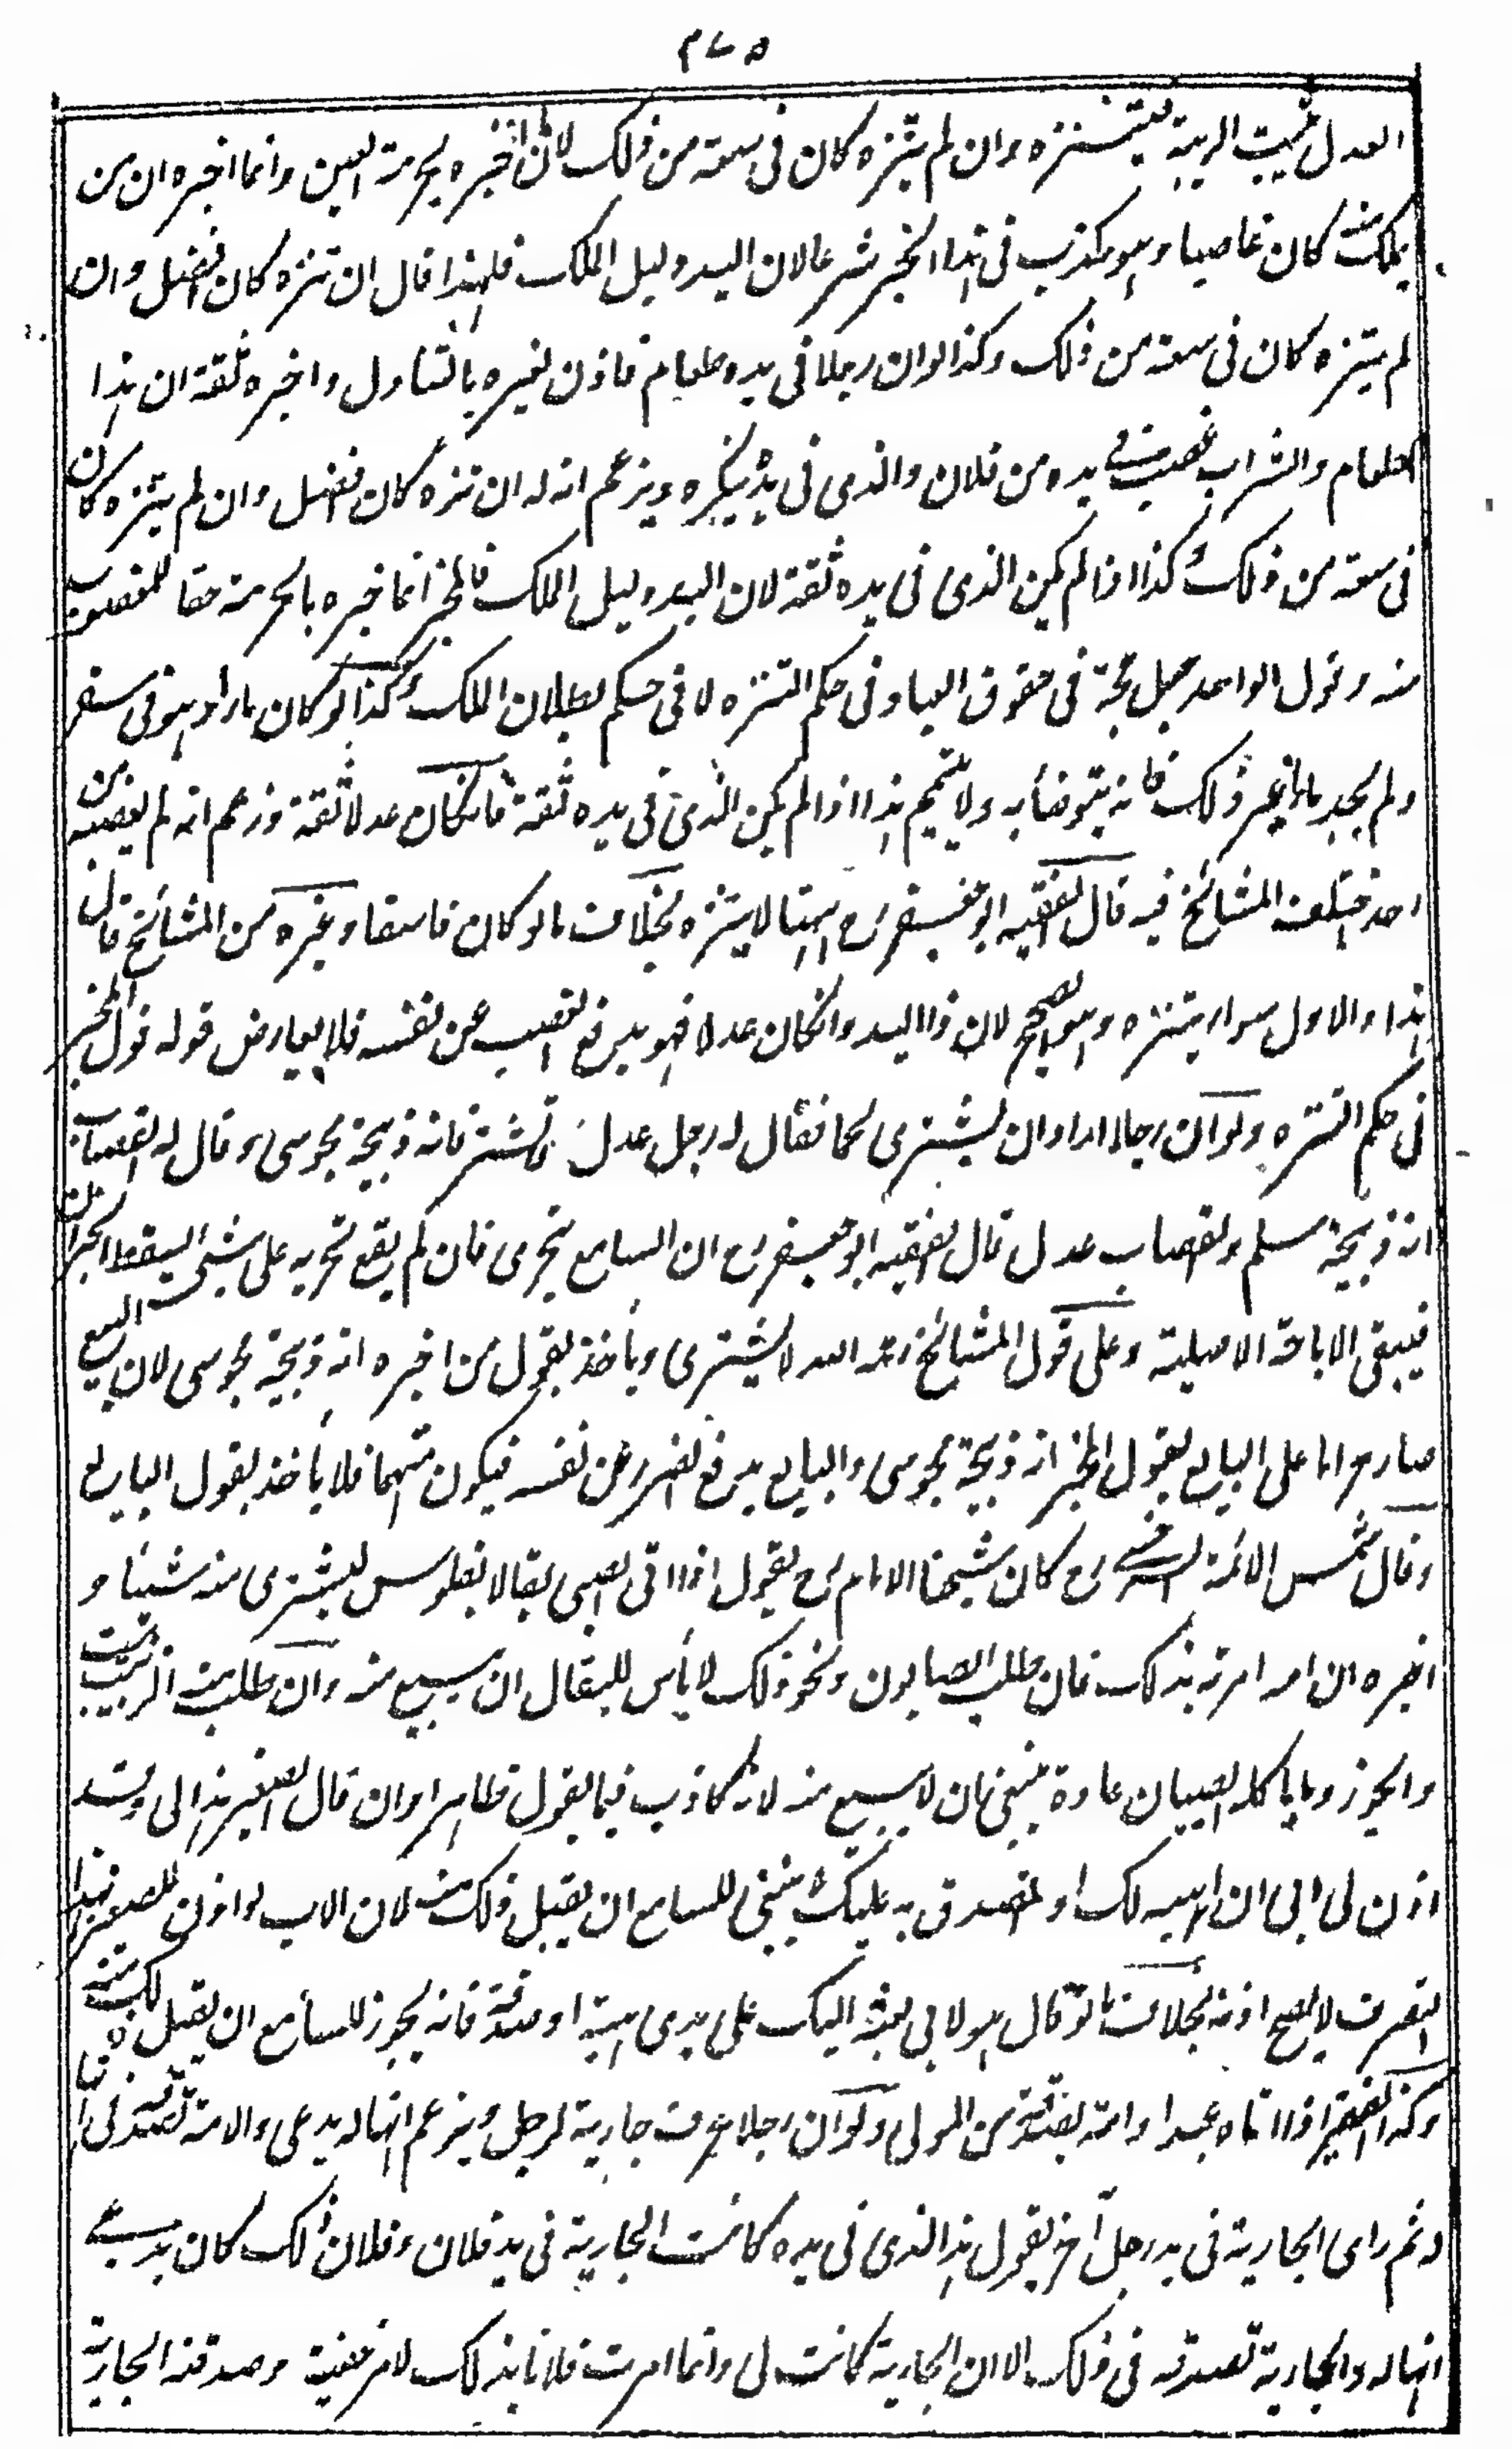 ٤٧٥
العدل يثبت الريبة يتنزه وان لم يتنزه كان فى سعة من ذلك لان المخبر ما اخبره بحرمة العين وانما اخبره ان من
يملك منه كان غاصبا وهو مكذب فى هذا الخبر شرعا لان اليد دليل الملك فلهذا قال ان تنزه كان افضل وان
لم يتنزه كان فى سعة من ذلك وكذا لو ان رجلا فى يده طعام فاذن لغيره بالتناول واخبره ثقة ان هذا
الطعام والشراب غصب فى يده من فلان والذى فى يده ينكره ويزعم انه له ان تنزه كان افضل وان لم يتنزه كان
فى سعة من ذلك وكذا اذا لم يكن الذى فى يده ثقة لان اليد دليل الملك فالمخبر انما اخبره بالحرمة حقا للمغصوب
منه وقول الواحد جعل حجة فى حقوق العباد فى حكم التنزه لا فى حكم بطلان الملك وكذا لو كان ماء اراد وهو فى سفر
ولم يجد ماء غير ذلك فانه يتوضأ به ولا يتيمم هذا اذا لم يكن الذى فى يده ثقة فانكان عدلا ثقة وزعم انه لم يغصبه من
احد اختلف المشائخ فيه قال الفقيه ابو جعفر رح ههنا لا يتنزه بخلاف ما لو كان فاسقا وغيره من المشائخ قال
هذا والاول سواء يتنزه وهو الصحيح لان ذا اليد وانكان عدلا فهو يدفع الغصب عن نفسه فلا يعارض قوله قول المخبر
فى حكم التنزه ولو ان رجلا اراد ان يشترى لحما فقال له رجل عدل لا تشتر فانه ذبيحة مجوسى وقال له القصاب
انه ذبيحة مسلم والقصاب عدل قال الفقيه ابو جعفر رح ان السامع يتحرى فان لم يقع تحريه على شئ يسقط الخبران
فيبقى الاباحة الاصلية وعلى قول المشائخ رحمه الله لا يشترى ويأخذ بقول من اخبره انه ذبيحة مجوسى لان بيع البيع
صار حراما على البايع بقول المخبر انه ذبيحة مجوسى والبايع يدفع الضرر عن نفسه فيكون متهما فلا يأخذ بقول البايع
وقال شمس الائمة السرخسى رح كان شيخنا الامام رح يقول اذا اتى الصبى بقالا بفلوس ليشترى منه شيئا و
اخبره ان امه امرته بذلك فان طلب الصابون ونحو ذلك لا بأس للبقال ان يبيع منه وان طلب منه الزبيب
والجوز وما يأكله الصبيان عادة ينبغى ان لا يبيع منه لانه كاذب فيما يقول ظاهرا وان قال الصغير هذا لى وقد
اذن لى ابى ان اهبه لك او اتصدق به عليك ينبغى للسامع ان يقبل ذلك منه لان الاب لو اذن للصغير بهذا
التصرف لا يصح اذنه بخلاف ما لو قال هو لابى بعثه اليك على يدى هبة او صدقة فانه يجوز للسامع ان يقبل ذلك منه
وكذا الفقير اذا اتاه عبد او امة بصدقة من المولى ولو ان رجلا عرف جارية لرجل ويزعم انها له يدعى والامة تصدقه فى
ثم رأى الجارية فى يد رجل آخر يقول هذا الذى فى يده كانت الجارية فى يد فلان وفلان ذلك كان يدعى
انها له والجارية تصدقه فى ذلك الا ان الجارية كانت لى وانما امرت فلانا بذلك لامر خفية وصدقته الجارية